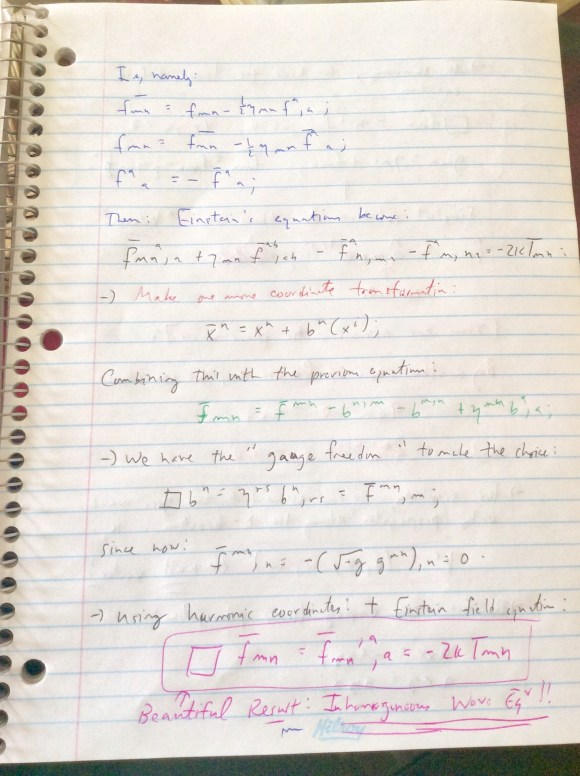 I, namely:
f̄mn = fmn - ½ηmn f^a,a ;
fmn = f̄mn - ½ηmn f̄^a a ;
f^a a = - f̄^a a ;
Then: Einstein's equations become:
f̄mn,^a a + ηmn f̄^ab,ab - f̄^a n,ma - f̄^a m,na = -2κTmn :
→) Make one more coordinate transformation:
x̄^n = x^n + b^n(x^i) ;
Combining this with the previous equation:
f̄mn = f̄^mn - b^n,m - b^m,n + η^mn b^a,a ;
→) We have the "gauge freedom" to make the choice:
□b^n = η^rs b^n,rs = f̄^mn,m ;
since now: f̄^mn,n = -(√-g g^mn),n = 0 .
→ using harmonic coordinates: + Einstein field equation:
□ f̄mn = f̄mn^,a,a = -2κ Tmn
↑ Beautiful Result: Inhomogeneous Wave Eqⁿ !!